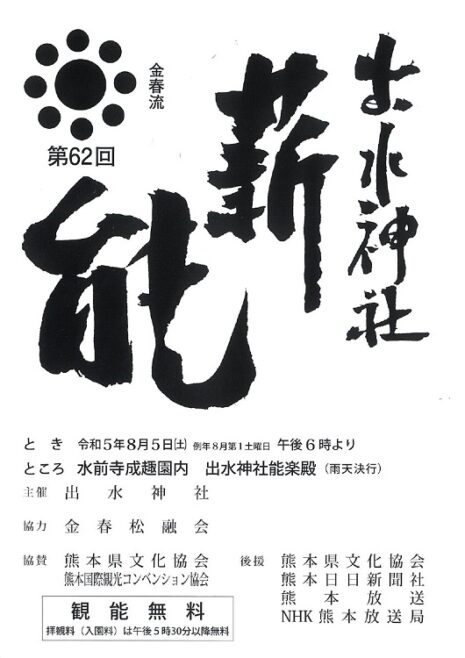 出水神社
薪能
金春流
第62回
とき 令和5年8月5日㈯ 例年8月第1土曜日 午後6時より
ところ 水前寺成趣園内 出水神社能楽殿（雨天決行）
主催 出水神社
協力 金春松融会
協賛 熊本県文化協会
熊本国際観光コンベンション協会
後援 熊本県文化協会
熊本日日新聞社
熊本放送
NHK熊本放送局
観能無料
拝観料（入園料）は午後5時30分以降無料